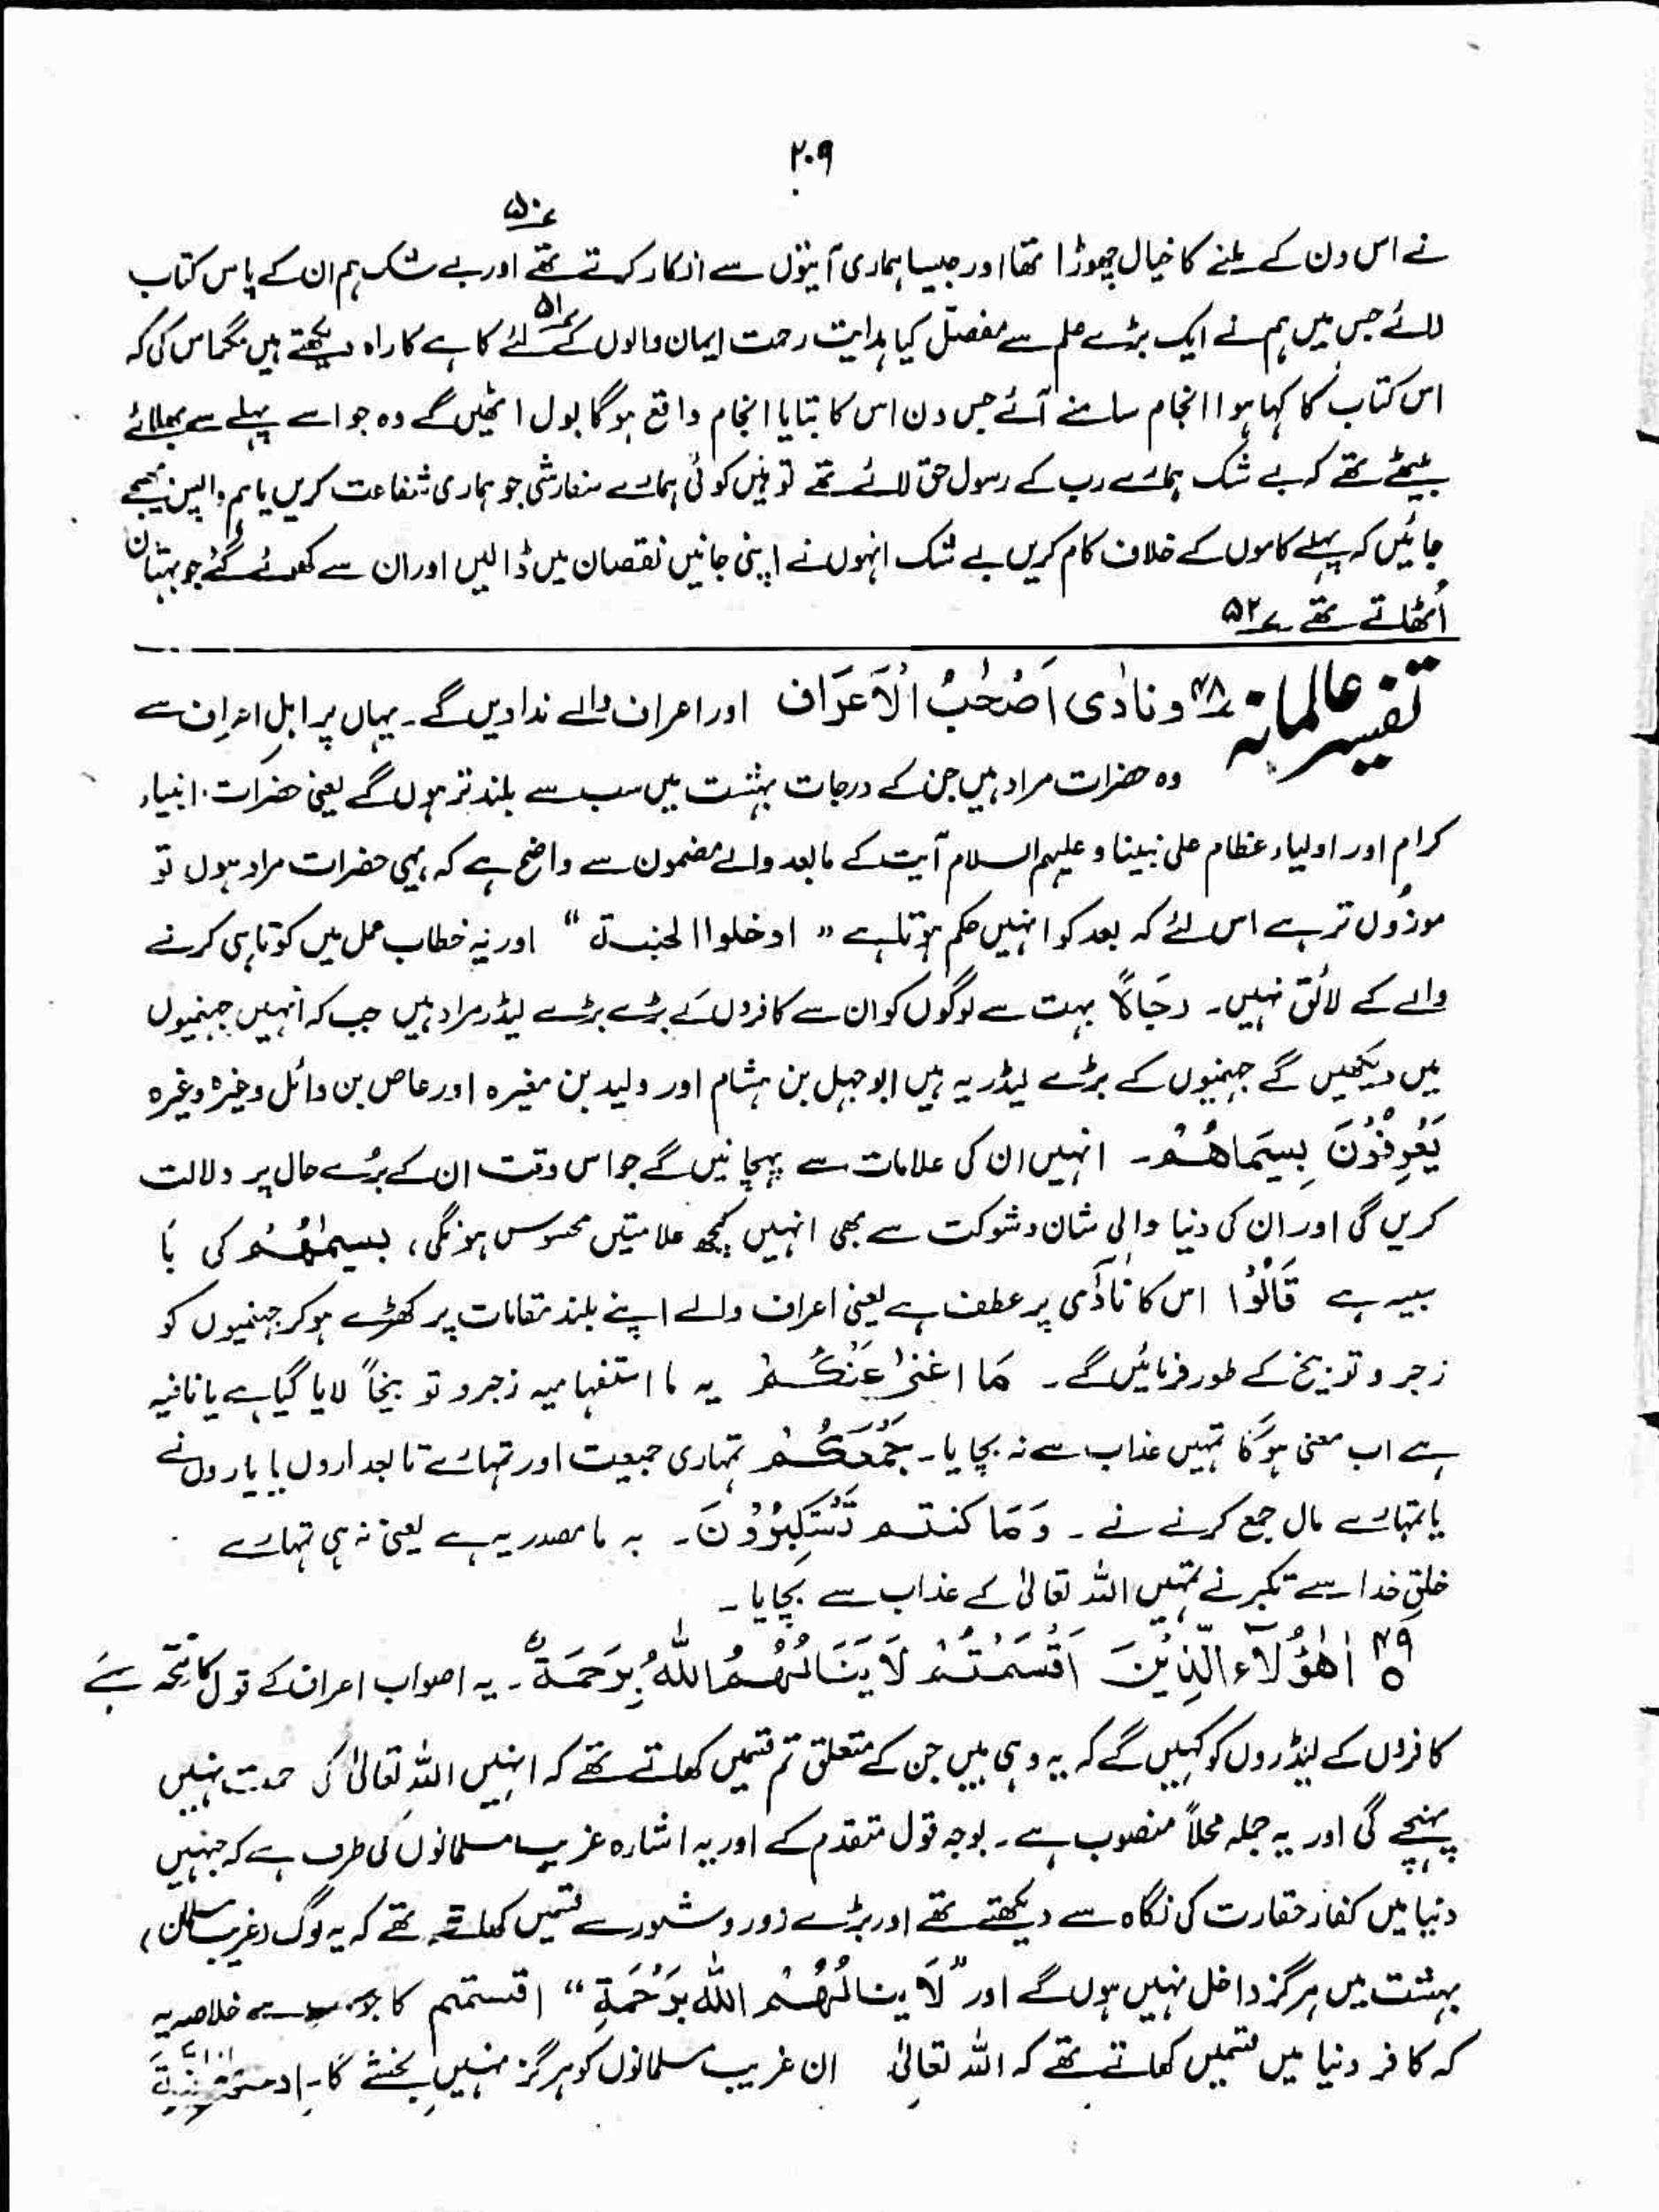 ۲۰۹
۵۰
نے اس دن کے ملنے کا خیال چھوڑا تھا اور جیسا ہماری آیتوں سے انکار کرتے تھے اور بے شک ہم ان کے پاس کتاب
۵۱
لائے جس میں ہم نے ایک بڑے علم سے مفصّل کیا ہدایت رحمت ایمان والوں کے لئے کاہے کا راہ دیکھتے ہیں مگر اس کی کہ
اس کتاب کا کہا ہوا انجام سامنے آئے جس دن اس کا بتایا انجام واقع ہوگا بول اٹھیں گے وہ جو اسے پہلے سے بھلائے
بیٹھے تھے کہ بے شک ہمارے رب کے رسول حق لائے تھے تو ہیں کوئی ہمارے سفارشی جو ہماری شفاعت کریں یا ہم واپس بھیجے
جائیں کہ پہلے کاموں کے خلاف کام کریں بے شک انہوں نے اپنی جانیں نقصان میں ڈالیں اور ان سے کھوئے گئے جو بہتان
اُٹھاتے تھے ۵۲
تفسیر عالمانہ ۴۸ ونادٰی اَصْحٰبُ الْاَعرَاف اور اعراف والے ندا دیں گے۔ یہاں پر اہلِ اعراف سے
وہ حضرات مراد ہیں جن کے درجات بہشت میں سب سے بلند تر ہوں گے یعنی حضرات انبیاء
کرام اور اولیاء عظام علی نبینا و علیہم السلام آیت کے مابعد والے مضمون سے واضح ہے کہ یہی حضرات مراد ہوں تو
موزُوں تر ہے اس لئے کہ بعد کو انہیں حکم ہوتا ہے " ادخلوا الجنۃ " اور یہ خطاب عمل میں کوتاہی کرنے
والے کے لائق نہیں۔ رجَالاً بہت سے لوگوں کو ان سے کافروں کے بڑے بڑے لیڈر مراد ہیں جب کہ انہیں جہنمیوں
میں دیکھیں گے جہنمیوں کے بڑے لیڈر یہ ہیں ابوجہل بن ہشام اور ولید بن مغیرہ اور عاص بن وائل وغیرہ وغیرہ
یَعْرِفُوْنَ بِسِیَماھُمْ۔ انہیں ان کی علامات سے پہچانیں گے جو اس وقت ان کے بُرے حال پر دلالت
کریں گی اور ان کی دنیا والی شان و شوکت سے بھی انہیں کچھ علامتیں محسوس ہونگی، بسیمٰھُمْ کی بَا
سببیہ ہے قَالُوْا اس کا نَادٰی پر عطف ہے یعنی اعراف والے اپنے بلند مقامات پر کھڑے ہوکر جہنمیوں کو
زجر و توبیخ کے طور فرمائیں گے۔ مَا اغنیٰ عَنْکُمْ یہ ما استفہامیہ زجر و توبیخاً لایا گیا ہے یا نافیہ
ہے اب معنی ہوگا تمہیں عذاب سے نہ بچایا۔ جَمْعُکُمْ تمہاری جمعیت اور تمہارے تابعداروں یا یاروں نے
یا تمہارے مال جمع کرنے نے۔ وَمَا کنتم تَسْتَکْبِرُوْنَ۔ یہ ما مصدریہ ہے یعنی نہ ہی تمہارے
خلقِ خدا سے تکبر نے تمہیں اللہ تعالیٰ کے عذاب سے بچایا۔
۴۹ اَھٰؤُلَآءِ الَّذِیْنَ اَقْسَمْتُمْ لَا یَنَالُھُمُ اللّٰہُ بِرَحمَۃٍ۔ یہ اصواب اعراف کے قول کا تتمہ ہے
کافروں کے لیڈروں کو کہیں گے کہ یہ وہی ہیں جن کے متعلق تم قسمیں کھاتے تھے کہ انہیں اللہ تعالیٰ کی رحمت نہیں
پہنچے گی اور یہ جملہ محلاً منصوب ہے۔ بوجہ قول متقدم کے اور یہ اشارہ غریب مسلمانوں کی طرف ہے کہ جنہیں
دنیا میں کفار حقارت کی نگاہ سے دیکھتے تھے اور بڑے زور و شور سے قسمیں کھاتے تھے کہ یہ لوگ (غریب مسلمان)
بہشت میں ہرگز داخل نہیں ہوں گے اور "لَا ینالُھُمْ اللّٰہُ بِرَحْمَۃٍ" اقسمتم کا جواب ہے خلاصہ یہ
کہ کافر دنیا میں قسمیں کھاتے تھے کہ اللہ تعالیٰ ان غریب مسلمانوں کو ہرگز نہیں بخشے گا۔